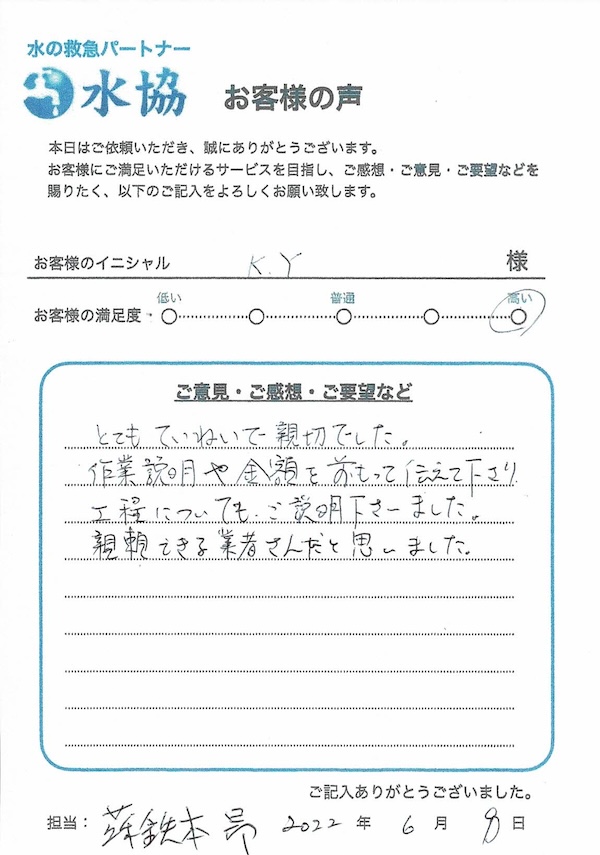 水の救急パートナー
水協
お客様の声
本日はご依頼いただき、誠にありがとうございます。
お客様にご満足いただけるサービスを目指し、ご感想・ご意見・ご要望などを
賜りたく、以下のご記入をよろしくお願い致します。
お客様のイニシャル K.Y 様
低い 普通 高い
お客様の満足度・
ご意見・ご感想・ご要望など
とてもていねいで親切でした。
作業説明や金額を前もって伝えて下さり
工程についても、ご説明下さいました。
親頼できる業者さんだと思いました。
ご記入ありがとうございました。
担当： 鉄本 2022 年 6 月 8 日